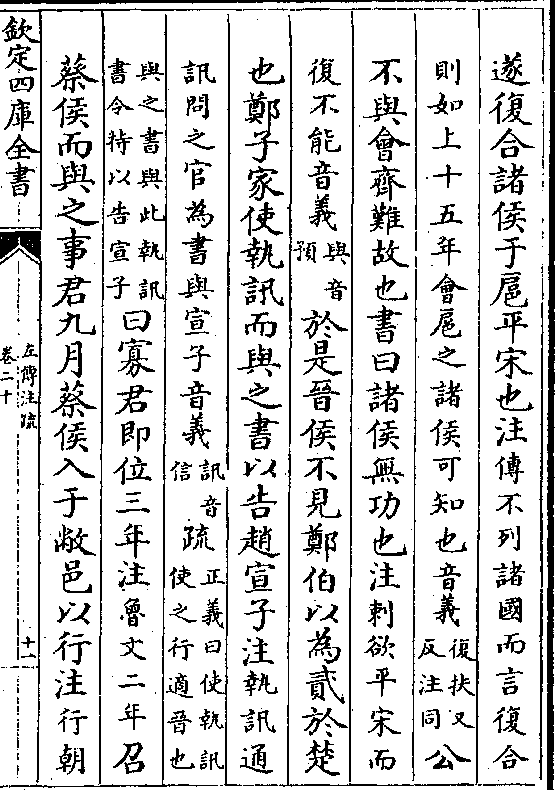 遂復合諸侯于扈平宋也注傳不列諸國而言復合
則如上十五年會扈之諸侯可知也音義復扶又反注同公
不與會齊難故也書曰諸侯無功也注刺欲平宋而
復不能音義與音預於是晉侯不見鄭伯以為貳於楚
也鄭子家使執訊而與之書以告趙宣子注執訊通
訊問之官為書與宣子音義訊音信疏正義曰使執訊使之行適晉也
與之書與此執訊書令持以告宣子曰寡君即位三年注魯文二年召
蔡侯而與之事君九月蔡侯入于敝邑以行注行朝
欽定四庫全書
左傳注疏
卷二十
十一